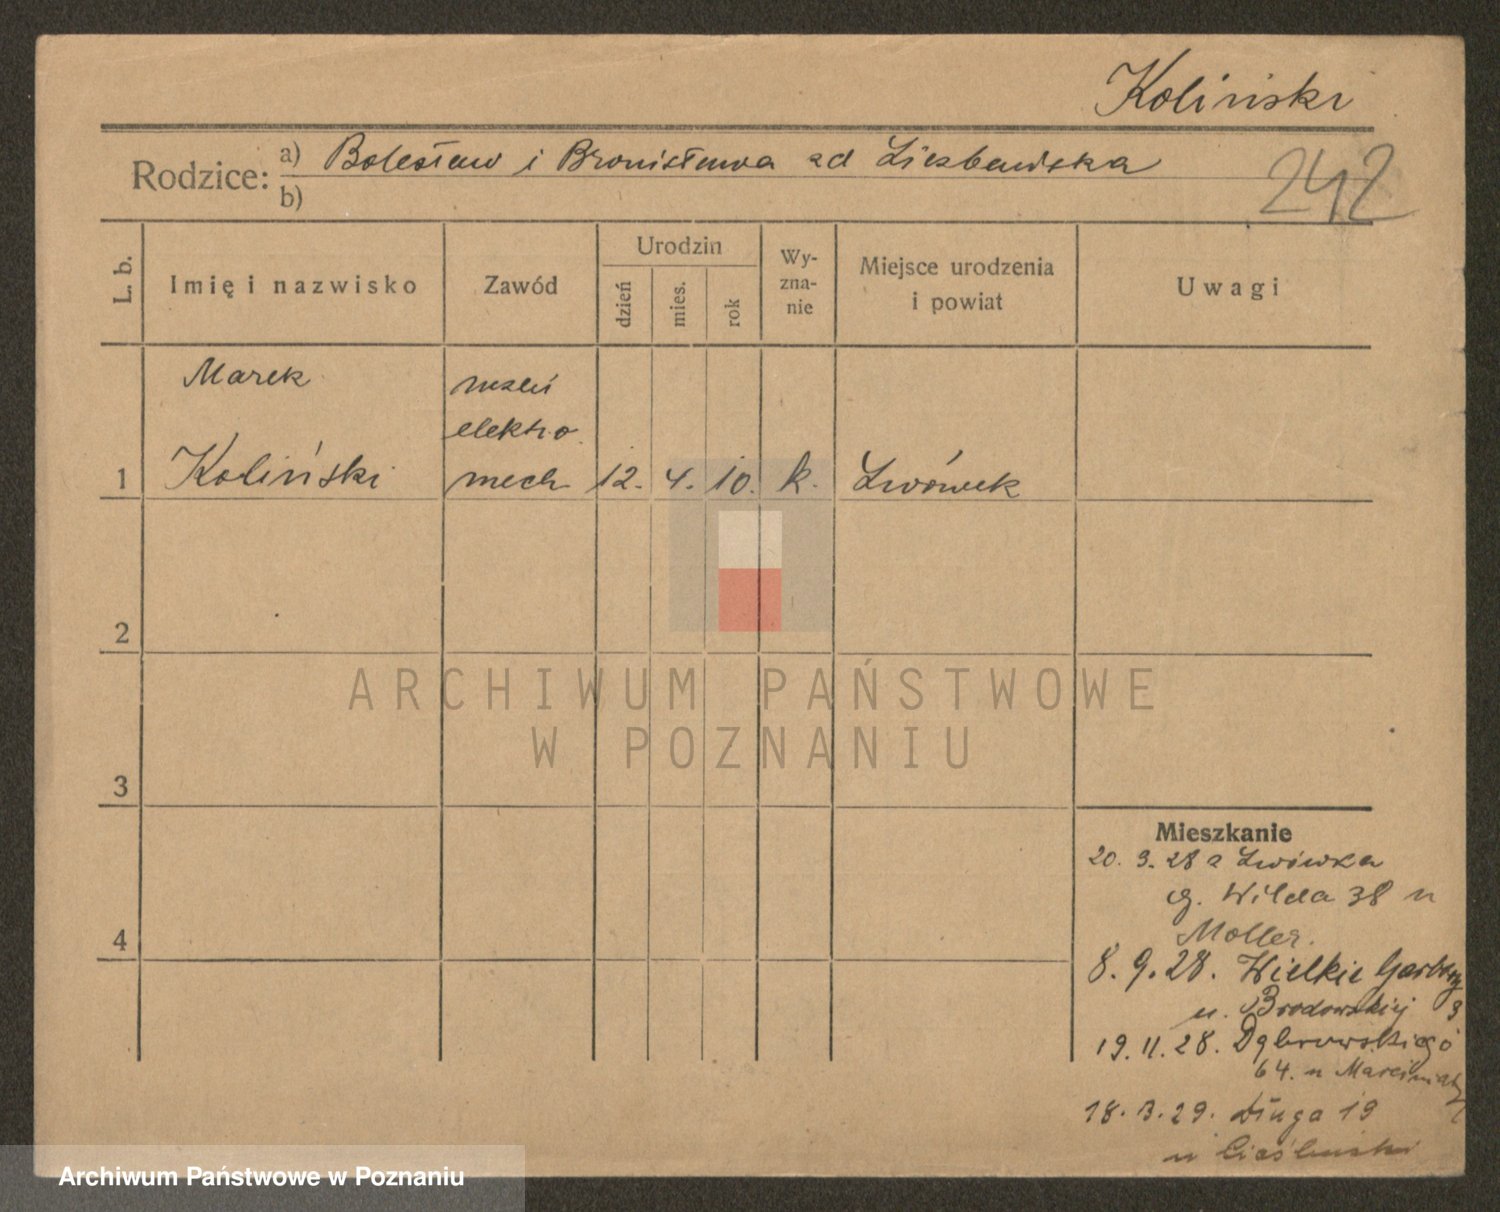 Koliński
Rodzice: a) Bolesław i Bronisława zd
b)
242
L. b.
Imię i nazwisko
Zawód
Urodzin
dzień
mies.
rok
Wy-
zna-
nie
Miejsce urodzenia
i powiat
Uwagi
Marek
uczeń
elektro
1 Koliński mech 12. 4. 10. k. Lwówek
2
3
4
ARCHIWUM PAŃSTWOWE
W POZNANIU
Mieszkanie
20. 3. 28 z Lwówka
g. Wilda 38 u
Moller.
8. 9. 28. Wielkie Garbary
u. Brodowskiej 9
19. 11. 28. Dąbrowskiego
64. u
18. 3. 29. Długa 19
u
Archiwum Państwowe w Poznaniu